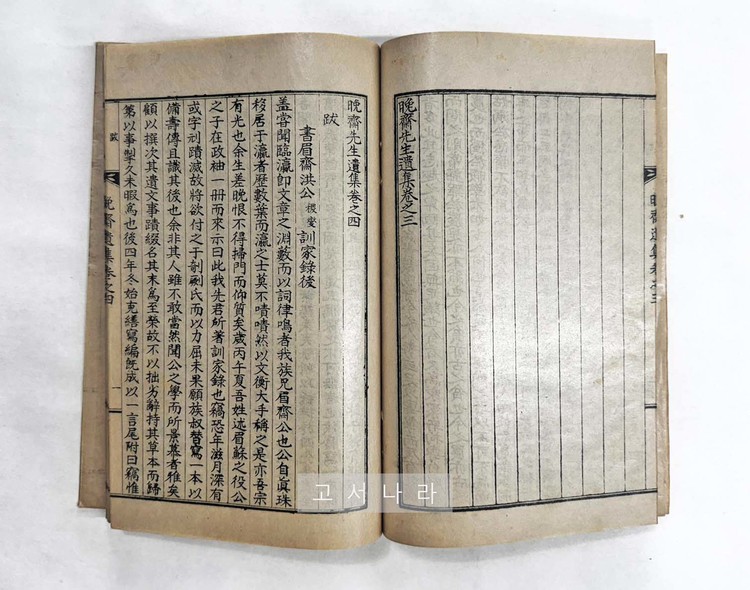 晩齋遺集卷之三
晩齋先生遺集卷之三
晩齋先生遺集卷之四
跋
書眉齋洪公根燮訓家錄後
蓋嘗聞臨瀛卽文章之淵藪而以詞律鳴者我族兄眉齋公也公自眞珠
移居于瀛者歷數葉而瀛之士莫不嘖嘖然以文衡大手稱之是亦吾宗
有光也余生差晩恨不得掃門而仰質矣歲丙午夏吾姓述眉蘇之役公
之子在政袖一冊而來示曰此我先君所著訓家錄也竊恐年滋月深有
或字刓蹟滅故將欲付之于剞劂氏而以力屈未果願族叔替寫一本以
備壽傳且識其後也余非其人雖不敢當然聞公之學而所景慕者雅矣
顧以撰次其遺文事蹟綴名其末爲至榮故不以拙劣辭持其草本而歸
第以事掣久未暇焉也後四年冬始克繕寫編旣成以一言尾附曰竊惟
跋
晩齋遺集卷之四
一
고서나라